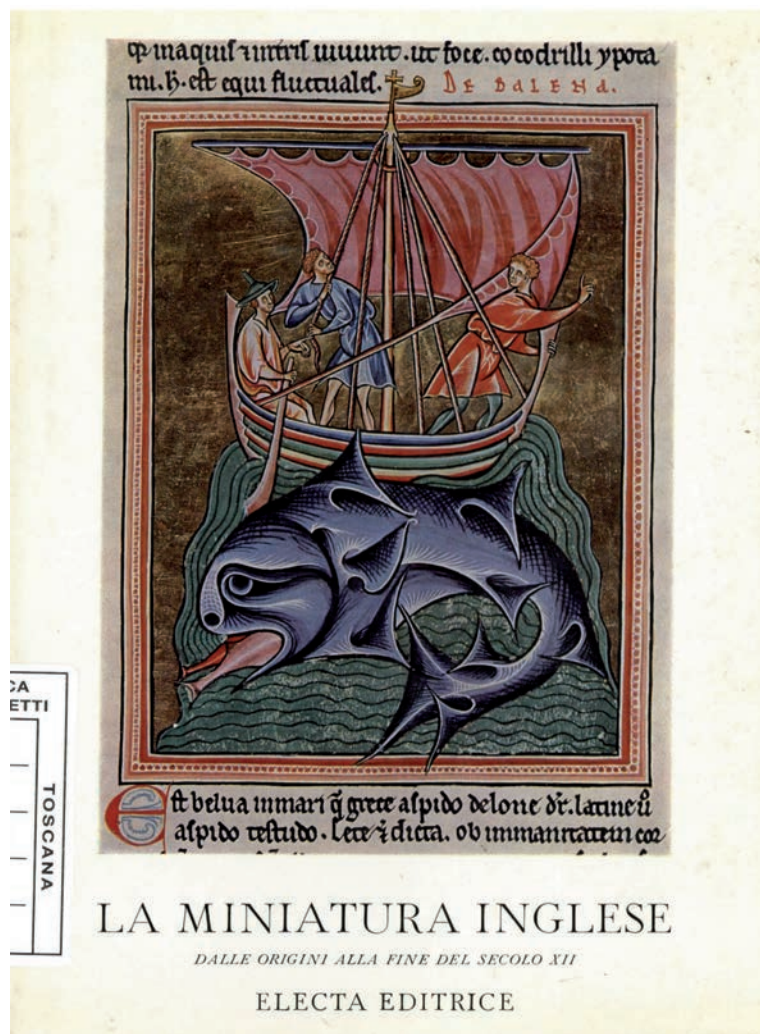 qꝫ in aquis ⁊ in t̄ris uiuunt. ut foce. cocodrilli ypota
mi. h̄. est equi fluctuales. DE BALENA.
CA
ETTI
TOSCANA
Est belua in mari q̄ grece aspido delone dr̄. latine ū
aspido testudo. Cete ⁊ dicta. ob immanitatem cor
LA MINIATURA INGLESE
DALLE ORIGINI ALLA FINE DEL SECOLO XII
ELECTA EDITRICE